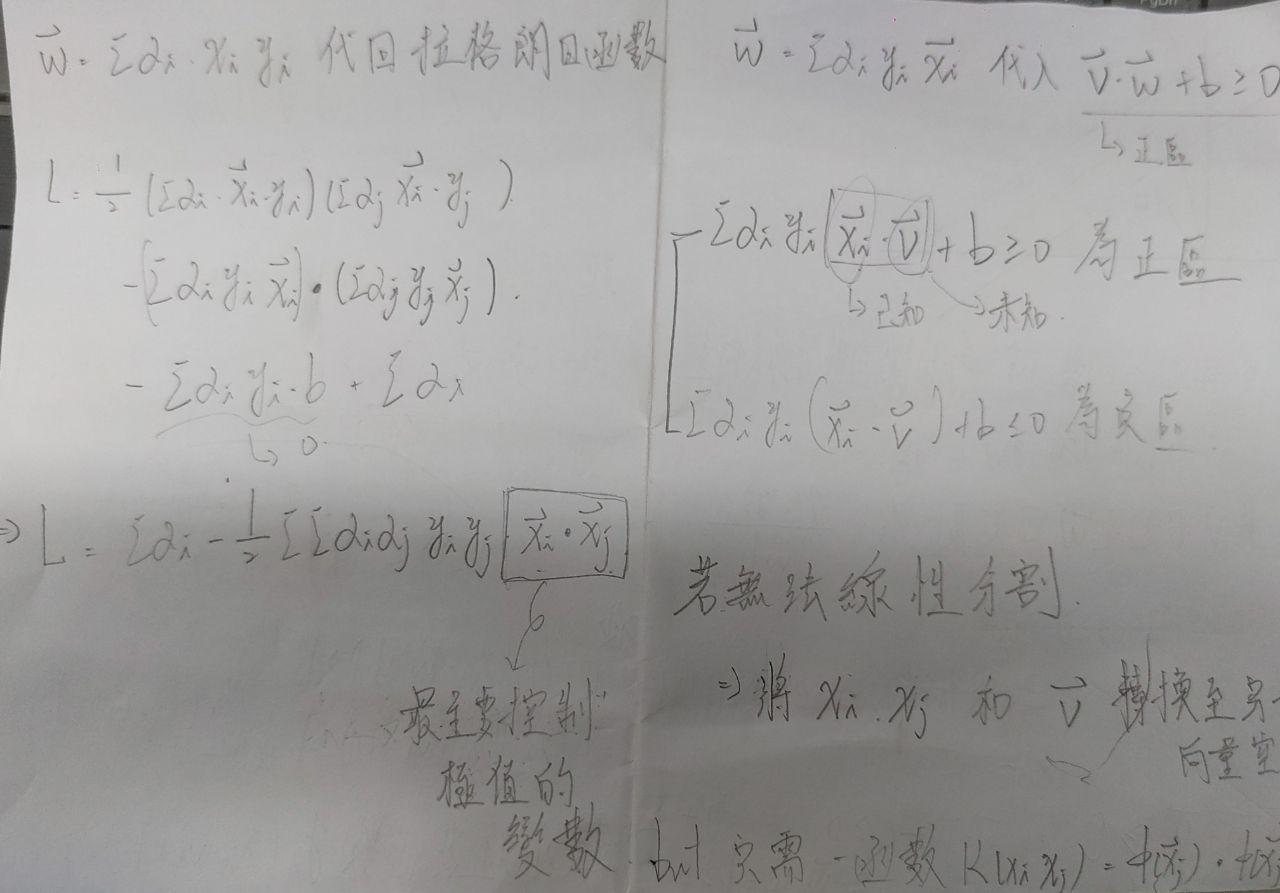 w⃗ = Σαi · xi yi 代回拉格朗日函數
L = 1/2 (Σαi · x⃗i · yi)(Σαj x⃗i · yj)
- (Σαi yi x⃗i) · (Σαj yj x⃗j).
- Σαi yi · b + Σαi
↳ 0.
⇒ L = Σαi - 1/2 ΣΣαiαj yi yj x⃗i · x⃗j
最主要控制
極值的
變數
w⃗ = Σαi yi x⃗i 代入 v⃗·w⃗ + b ≥ 0
↳ 正區
Σαi yi x⃗i · v⃗ + b ≥ 0 為正區
↳ 已知 → 未知.
Σαi yi (x⃗i · v⃗) + b ≤ 0 為負區
若無法線性分割.
⇒ 將 xi . xj 和 v⃗ 轉換至另一
向量空
but 只需一函數 K(xi xj) = ϕ(x⃗j) · ϕ(x⃗